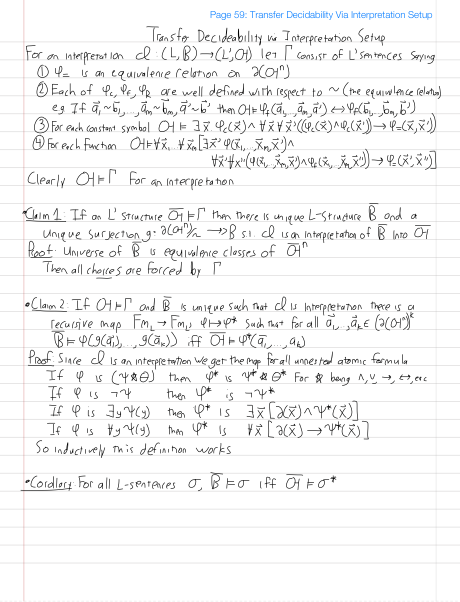 Page 59: Transfer Decidability Via Interpretation Setup
Transfer Decideability via Interpretation Setup
For an interpretation 𝒹: (L, B) → (L', 𝒪) let Γ consist of L' sentences saying
① φ₌ is an equivalence relation on ∂(𝒪ⁿ)
② Each of φ_c, φ_F, φ_R are well defined with respect to ~ (the equivalence relation)
eg If a⃗₁~b⃗₁, ..., a⃗ₘ~b⃗ₘ, a⃗'~b⃗' then 𝒪⊨φ_F(a⃗₁,..,a⃗ₘ,a⃗') ↔ φ_F(b⃗₁,..,b⃗ₘ,b⃗')
③ For each constant symbol 𝒪 ⊨ ∃x⃗ φ_c(x⃗) ∧ ∀x⃗ ∀x⃗'((φ_c(x⃗)∧φ_c(x⃗')) → φ₌(x⃗,x⃗'))
④ For each function 𝒪⊨∀x⃗₁..∀x⃗ₘ[∃x⃗' φ(x⃗₁,..,x⃗ₘ,x⃗') ∧
∀x⃗'∀x⃗''(φ(x⃗₁,..,x⃗ₘ,x⃗')∧φ_c(x⃗₁,..,x⃗ₘ,x⃗'')) → φ₌(x⃗',x⃗'')]
Clearly 𝒪⊨Γ for an interpretation
•Claim 1: If an L' structure 𝒪̅⊨Γ then there is unique L-structure B̅ and a
unique surjection g: ∂(𝒪̅ⁿ)/~ → B̅ s.t. 𝒹 is an interpretation of B̅ into 𝒪̅
Proof: Universe of B̅ is equivalence classes of 𝒪̅ⁿ
Then all choices are forced by Γ
•Claim 2: If 𝒪̅⊨Γ and B̅ is unique such that 𝒹 is interpretation there is a
recursive map Fm_L → Fm_L' φ↦φ* such that for all a⃗₁,..,a⃗ₖ∈(∂(𝒪̅ⁿ))ᵏ
B̅⊨φ(g(a⃗₁),..,g(a⃗ₖ)) iff 𝒪̅⊨φ*(a⃗₁,..,aₖ)
Proof: Since 𝒹 is an interpretation we get the map for all unnested atomic formula
If φ is (ψ☆θ) then φ* is ψ*☆θ* For ☆ being ∧,∨,→,↔,etc
If φ is ¬ψ then φ* is ¬ψ*
If φ is ∃yψ(y) then φ* is ∃x⃗[∂(x⃗)∧ψ*(x⃗)]
If φ is ∀yψ(y) then φ* is ∀x⃗[∂(x⃗)→ψ*(x⃗)]
So inductively this definition works
•Corollary: For all L-sentences σ, B̅⊨σ iff 𝒪̅⊨σ*